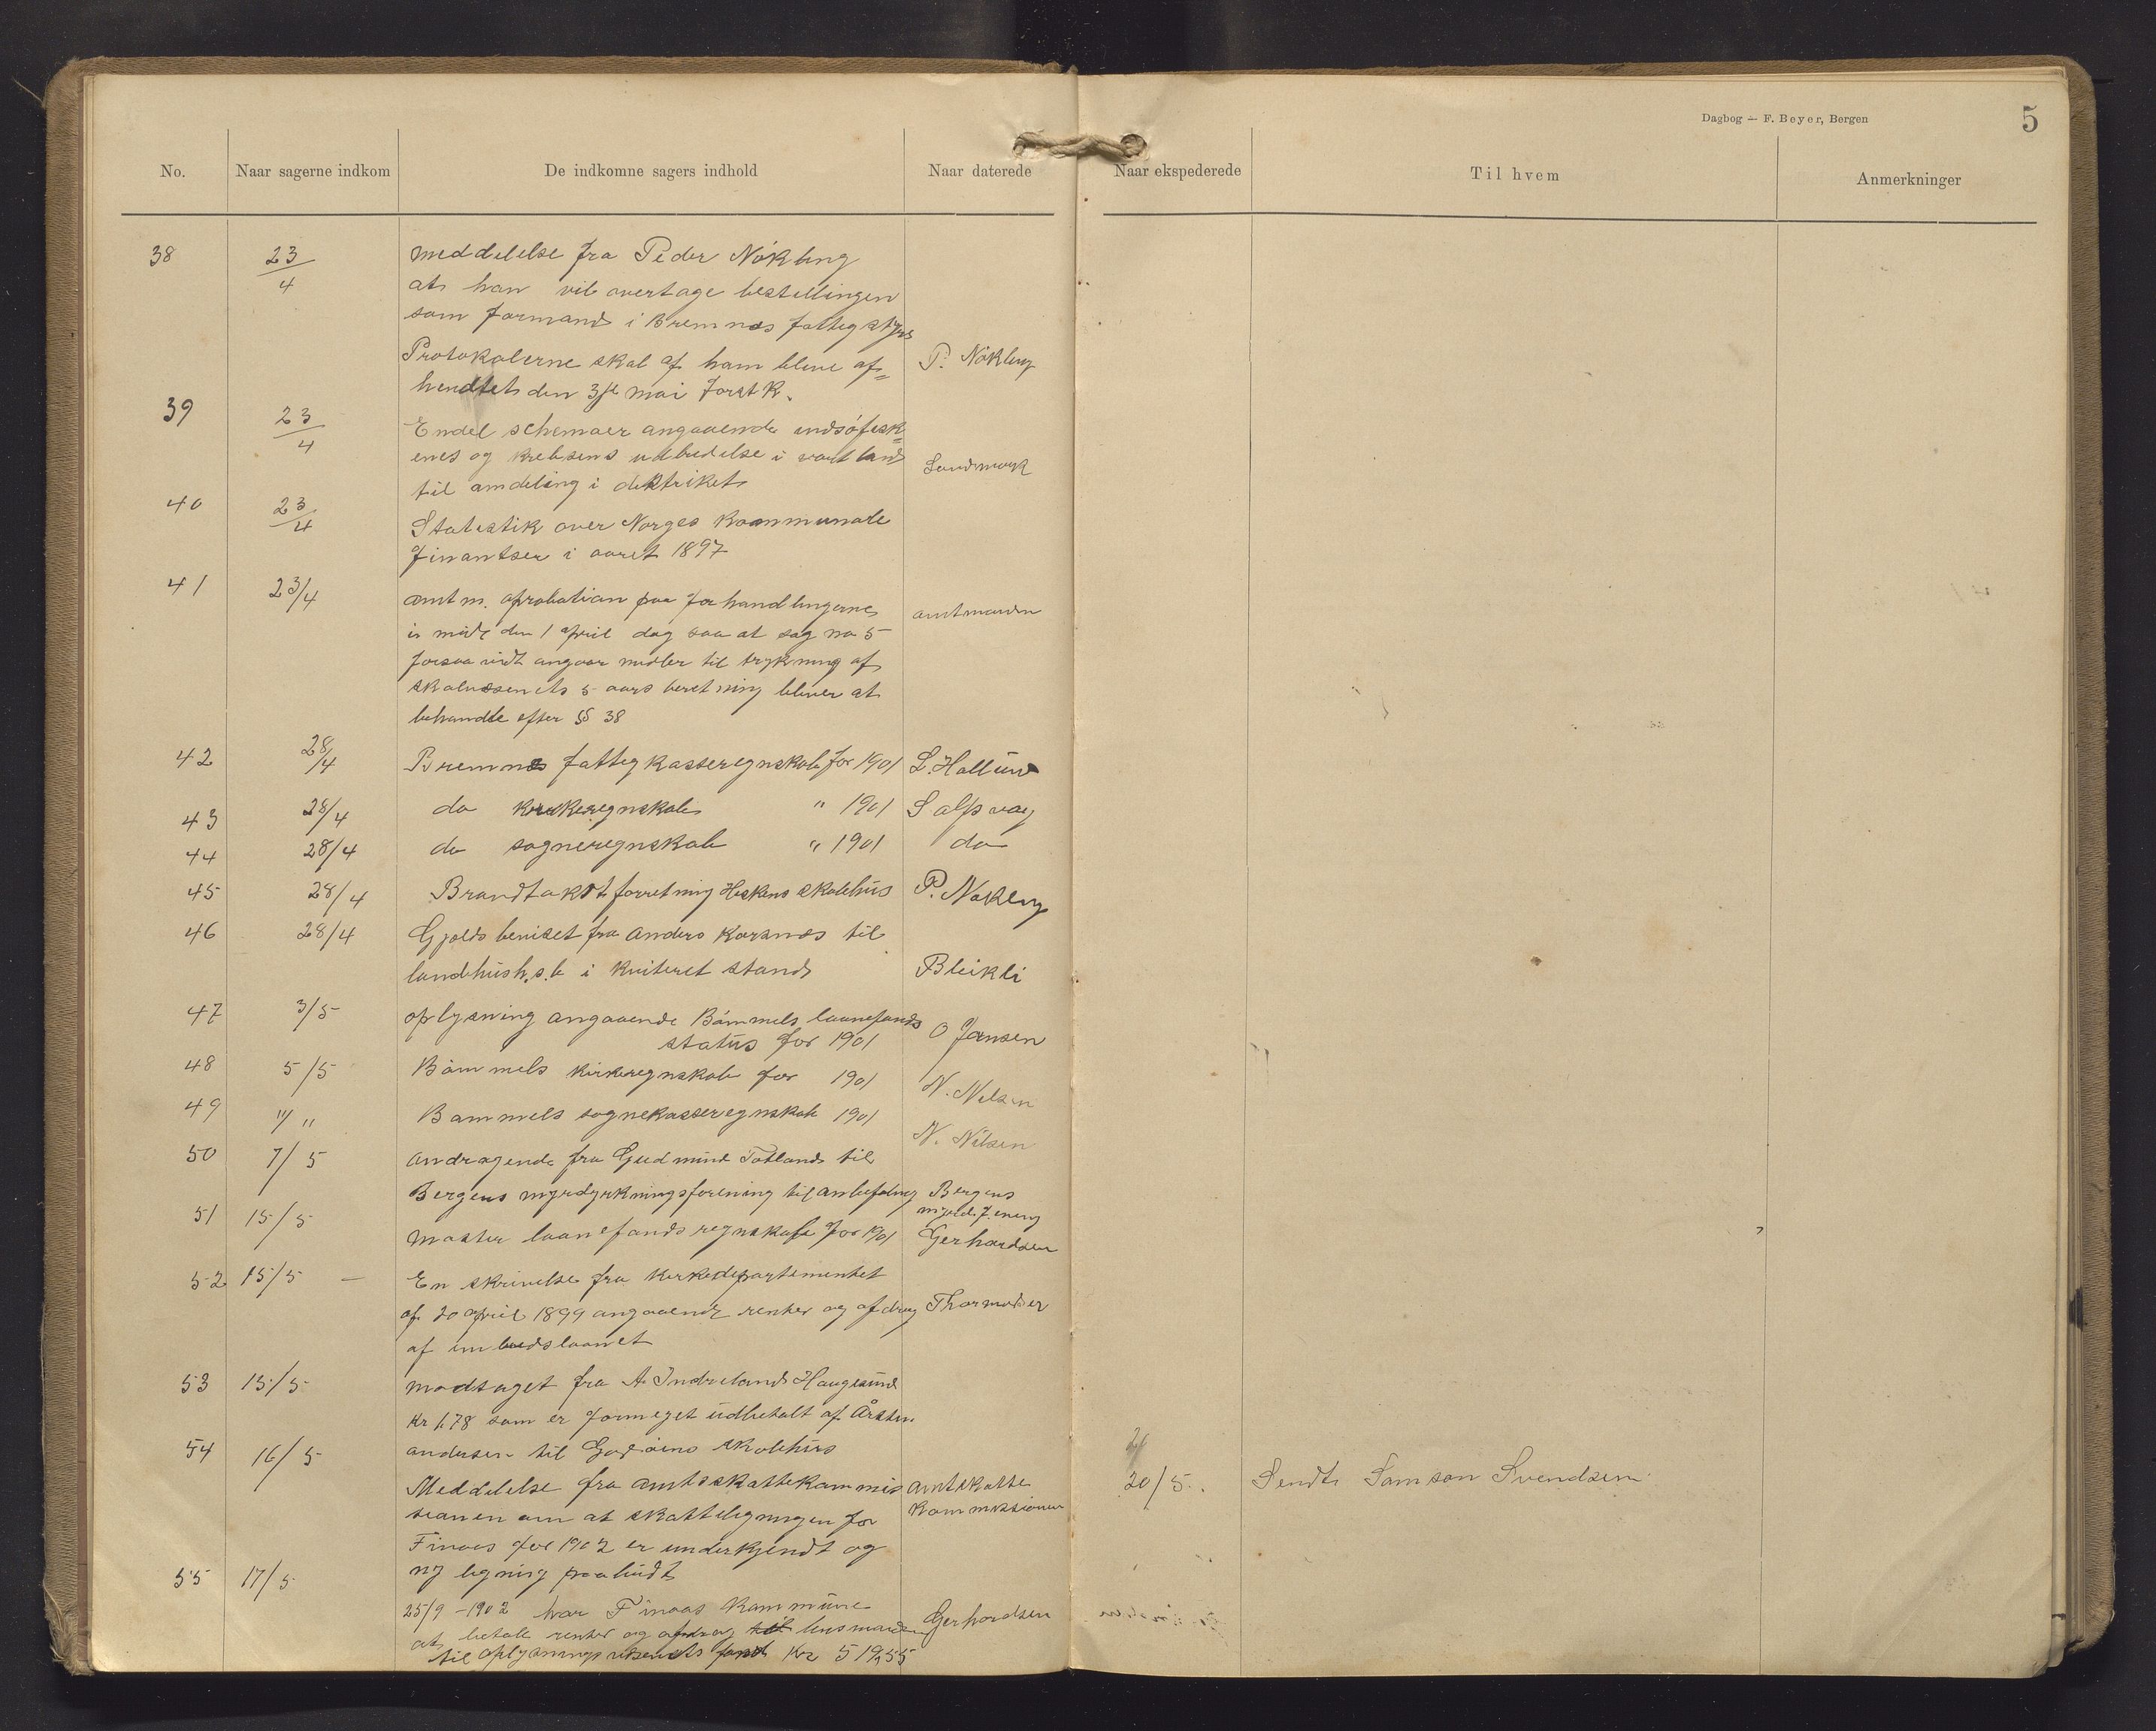 Dagbog — F. Beyer, Bergen
5
No. Naar sagerne indkom De indkomne sagers indhold Naar daterede Naar ekspederede Til hvem Anmerkninger
38 23/4 meddelelse fra Peder Nökling
at han vil overtage bestillingen
som formand i Bremnes fattigstyre
Protokolerne skal af ham blive af= P. Nökling
hendtet den 3je mai først k.
39 23/4 Endel schemaer angaaende indsöfisk=
enes og krebsens udbredelse i vort land Landmark
til omdeling i distriket
40 23/4 Statistik over Norges kommunale
finantser i aaret 1897
41 23/4 amtm. aprobation paa forhandlingerne amtmanden
i möde den 1 april dog saa at sag no 5
forsaavidt angaar midler til trykning af
skolevæsenets 5 aars beretning bliver at
behandle efter § 38
42 28/4 Bremnes fattigkasseregnskab for 1901 L. Hallund
43 28/4 do kirkeregnskab " 1901 Salpvag
44 28/4 do sogneregnskab " 1901 do
45 28/4 Brandtakstforretning Hiskens skolehus P. Nökling
46 28/4 Gjeldsbeviset fra Anders Korsnes til
landhush.s.k i kviteret stand Bleikli
47 3/5 oplysning angaaende Bömmels laanefonds O Jansen
status for 1901
48 5/5 Bömmels kirkeregnskab for 1901 N. Nilsen
49 "/" Bömmels sognekasseregnskab 1901 N. Nilsen
50 7/5 andragende fra Gudmund Totland til
Bergens myrdyrkningsforening til anbefaling Bergens
myrd. f.ening
51 15/5 Moster laanefonds regnskab for 1901 Gerhardsen
52 15/5 — En skrivelse fra kirkedepartementet
af 20 april 1899 angaaende renter og afdrag Thormodsæter
af embedslaanet
53 15/5 modtaget fra A. Indreland Haugesund
kr 1.78 som er formeget udbetalt af
andersen til Goddöens skolehus
54 16/5 Meddelelse fra amtsskattekommis amtskatte 20/5. Sendt Samson Svendsen
sionen om at skatteligningen for kommissionen
Finaas for 1902 er underkjendt og
ny ligning paabudt
55 17/5 25/9 -1902 har Finaas kommune Gerhardsen
at betale renter og afdrag til
til oplysningsvæsenets fond Kr 519,55